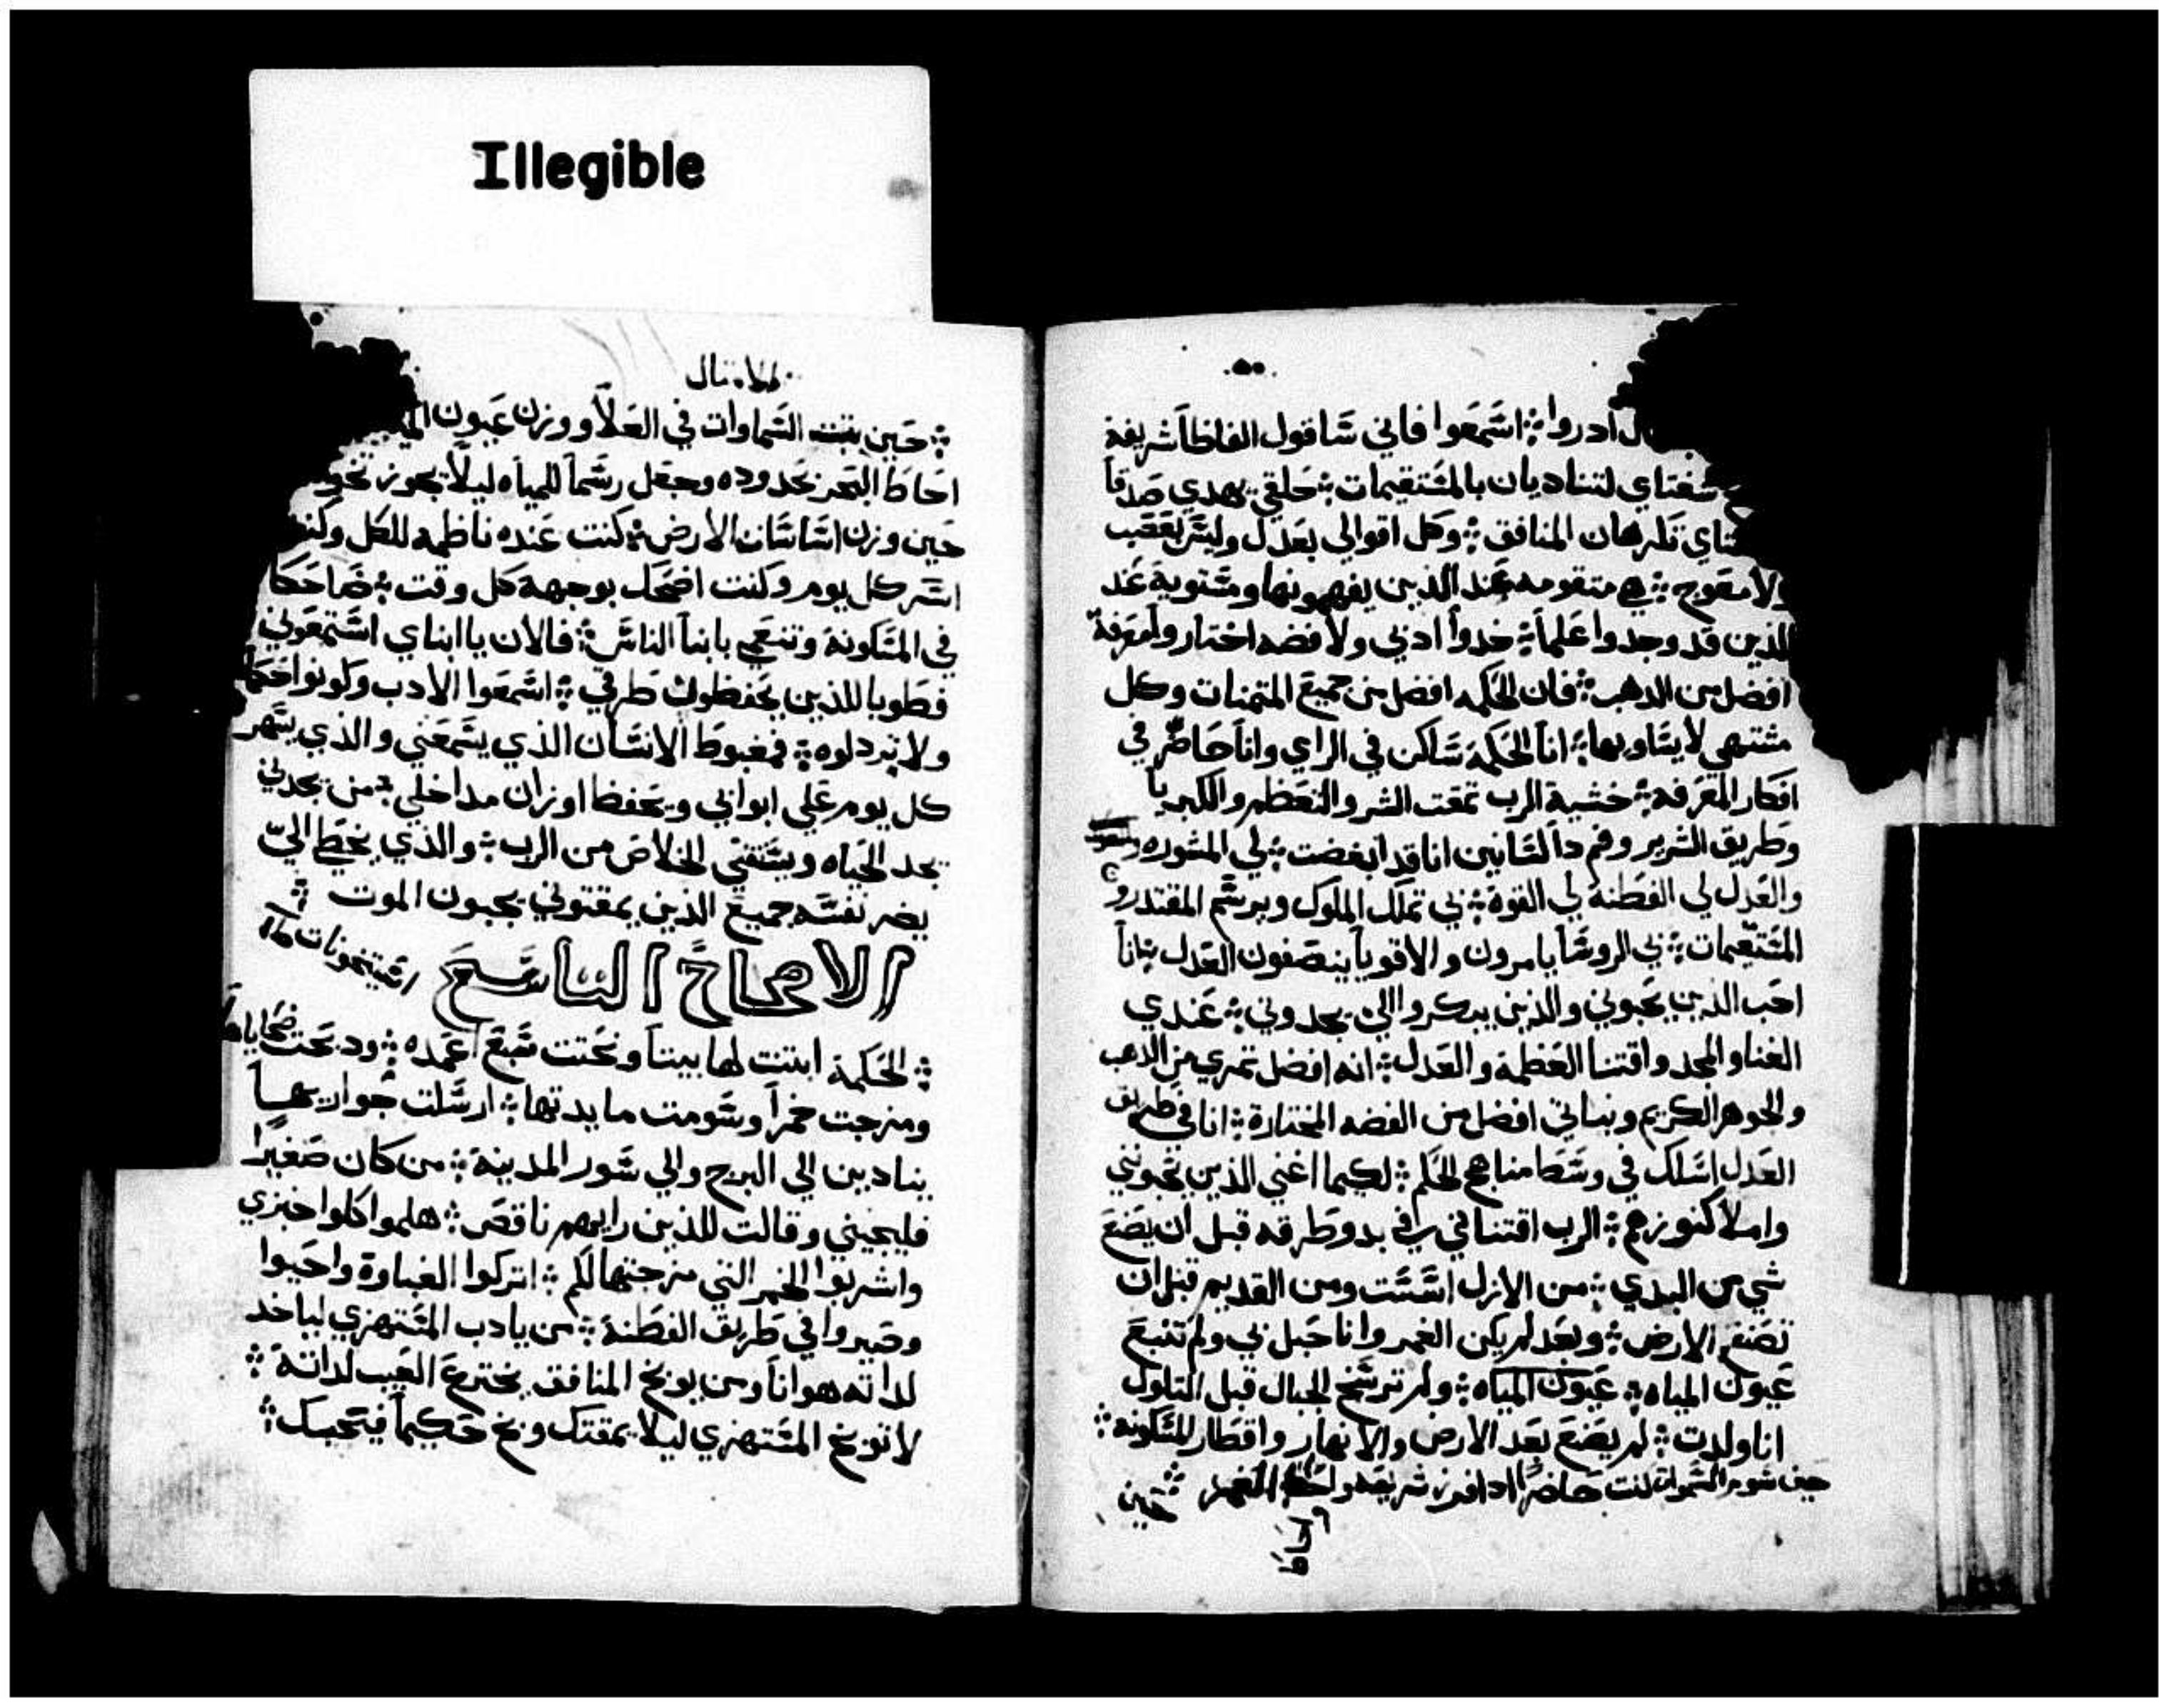 Illegible
ادروا ؞ اسمعوا فاني ساقول الفاظاً شريفة
شفتاي لتناديان بالمستقيمات ؞ حلقي يهدي صدقاً
تكرهان المنافق ؞ وكل اقوالي بعدل وليس بعقب
ولا معوج ؞ هي متقومه عند الذين يفهمونها ومستوية عند
الذين قد وجدوا علماً ؞ خدوا ادبي ولا فضه اختاروا معرفة
افضل من الدهب ؞ فان الحكمه افضل من جميع المتمنات وكل
مشتهي لا يساويها ؞ انا الحكمة ساكن في الراي وانا حاضر في
افكار المعرفه ؞ خشية الرب تمقت الشر والتعظم والكبريا
وطريق الشرير وفم دا لسانين انا قد ابغضت ؞ لي المشوره
والعدل لي الفطنة لي القوة ؞ بي تملك الملوك ويرسم المقتدروا
المستقيمات ؞ بي الروسا يامرون والاقويا ينصفون العدل ؞ انا
احب الذين يحبوني والذين يبكروا الي يجدوني ؞ عندي
الغنا والمجد واقتنا العظمة والعدل ؞ انه افضل تمري من الدهب
والجوهر الكريم ونباتي افضل من الفضه المختارة ؞ انا في طريق
العدل اسلك في وسط مناهج الحكم ؞ لكيما اغني الذين يحبوني
واملا كنوزهم ؞ الرب اقتناني في بدو طرقه قبل ان يضع
شي من البدي ؞ من الازل اسست ومن القديم قبل ان
تصنع الارض ؞ وبعد لم يكن الغمر وانا حبل بي ولم تنبع
عيون المياه ؞ عيون المياه ؞ ولم ترسخ الجبال قبل التلول
انا ولدت ؞ لم يضع بعد الارض والانهار واقطار المسكونه ؞
حاضراً
حين
لامتال
؞ حين بتت السماوات في العلا ووزن عيون
احاط البحر بحدوده وجعل رسماً للمياه ليلا يجوز
حين وزن اساسات الارض ؞ كنت عنده ناظمه للكل
اسر كل يوم وكنت اضحك بوجهه كل وقت ؞ ضاحكا
في المسكونة وتنعمي بابنا الناس ؞ فالان يا ابناي استمعوني
فطوبا للذين يحفظون طرقي ؞ اسمعوا الادب وكونوا حكما
ولا تبردلوه ؞ فمغبوط الانسان الذي يسمعني والذي يسهر
كل يوم علي ابوابي ويحفظ اوزان مداخلي ؞ من يجدني
يجد الحياه ويستقي الخلاص من الرب ؞ والذي يخطي اليّ
يضر نفسه جميع الذين يمقتوني يحبون الموت ؞
الاصحاح التاسع
؞ الحكمة ابتنت لها بيتاً ونحتت سبع اعمده ؞ ودبحت ضحاياها
ومزجت خمراً وسومت مايدتها ؞ ارسلت جواريها
ينادين الي البرج والي سور المدينة ؞ من كان صغيراً
فليجيني وقالت للذين رايهم ناقص ؞ هلموا كلوا خبزي
واشربوا الخمر التي مزجتها لكم ؞ اتركوا الغباوة واحيوا
وصيروا في طريق الفطنة ؞ من يادب المستهزي لياخد
لداته هواناً ومن يوبخ المنافق يخترع العيب لداته ؞
لا توبخ المستهزي ليلا يمقتك وبخ حكيماً فيحبك ؞